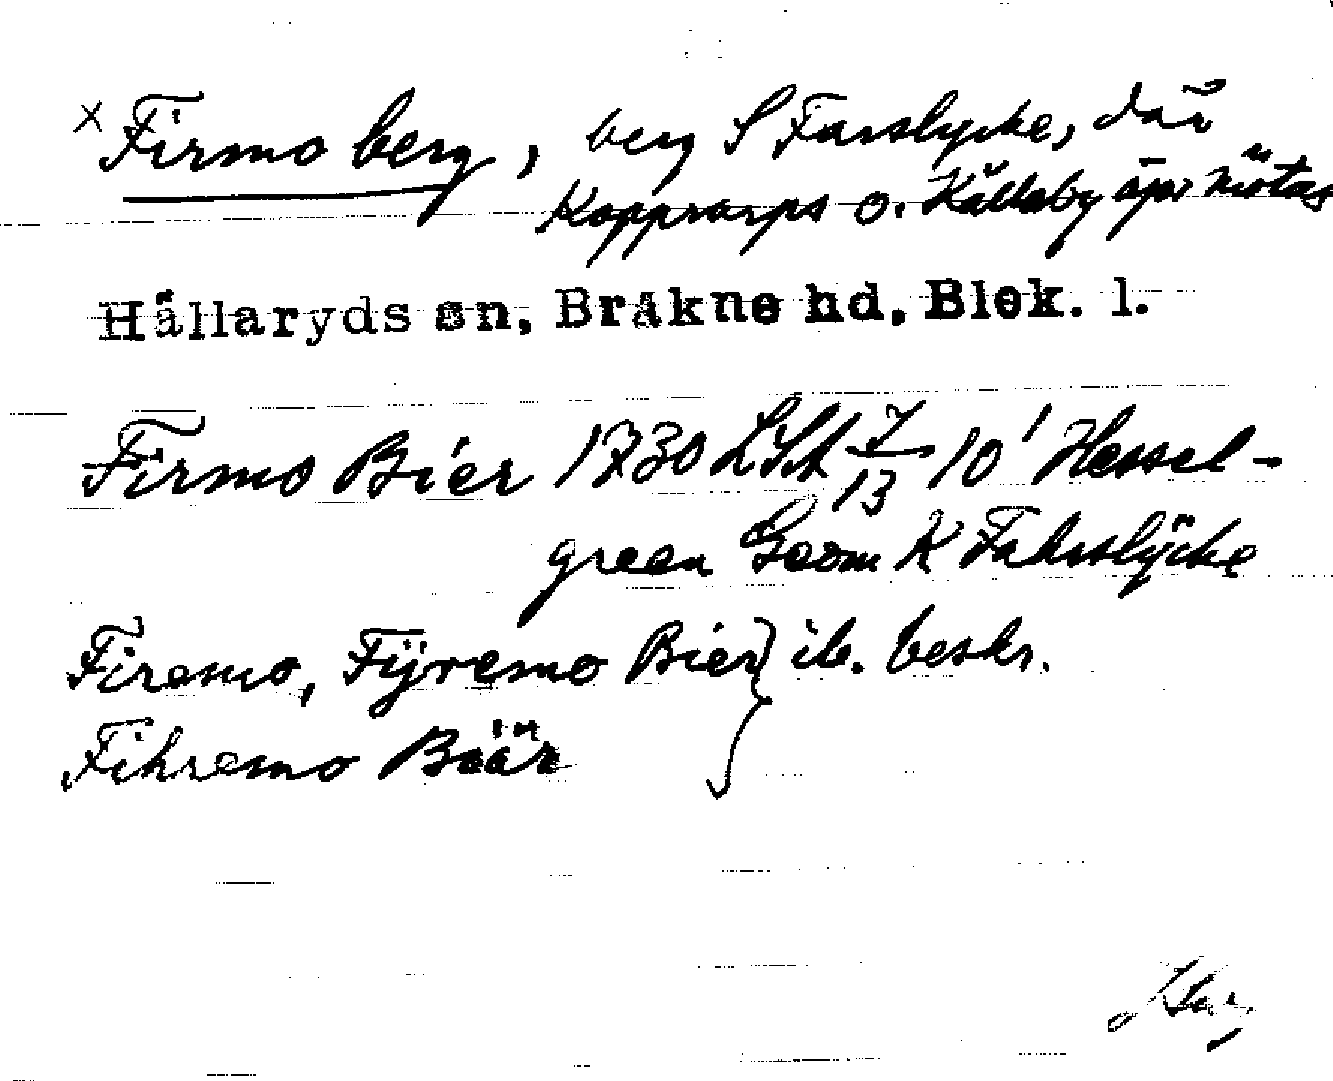 x Firmo berg, berg S Farslycke, där
Kopprarps o. Källeby ägor mötas
Hällaryds sn, Bräkne hd, Blek. l.
Firmo Bier 1730 LSA 7/13 10' Hessel-
green Geom K Fahrslÿcke
Firemo, Fÿremo Bier } ib. beskr.
Fihremo Baär